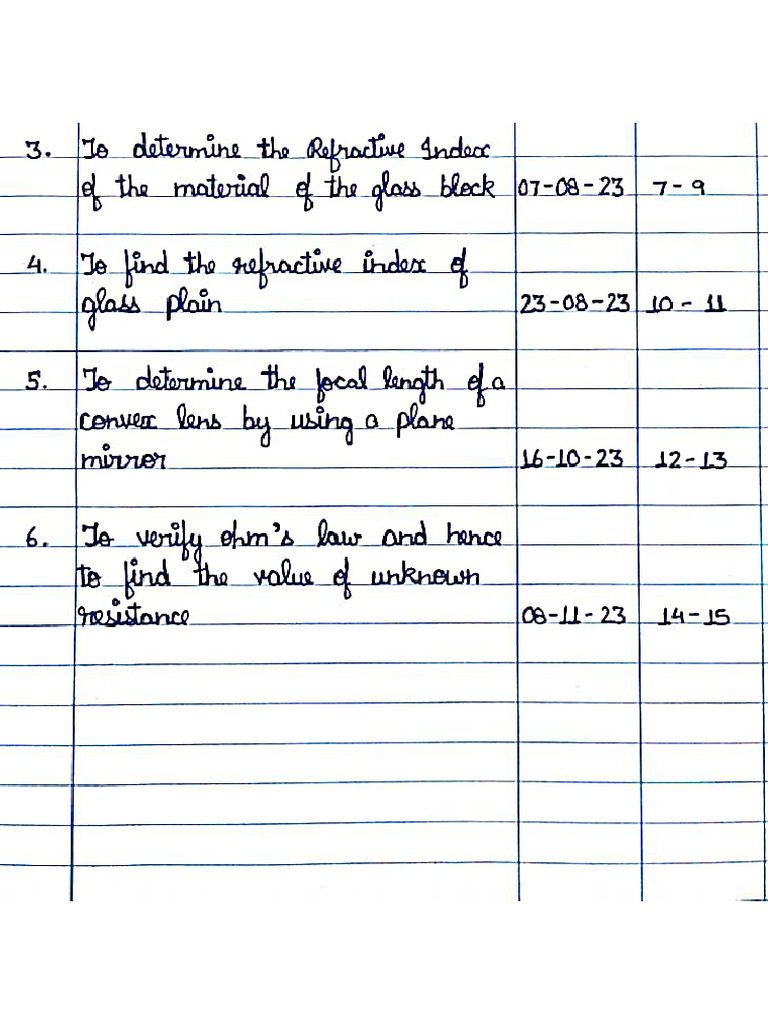 3. To determine the Refractive Index
of the material of the glass block 07-08-23 7-9
4. To find the refractive index of
glass plain 23-08-23 10-11
5. To determine the focal length of a
convex lens by using a plane
mirror 16-10-23 12-13
6. To verify ohm's law and hence
to find the value of unknown
resistance 08-11-23 14-15